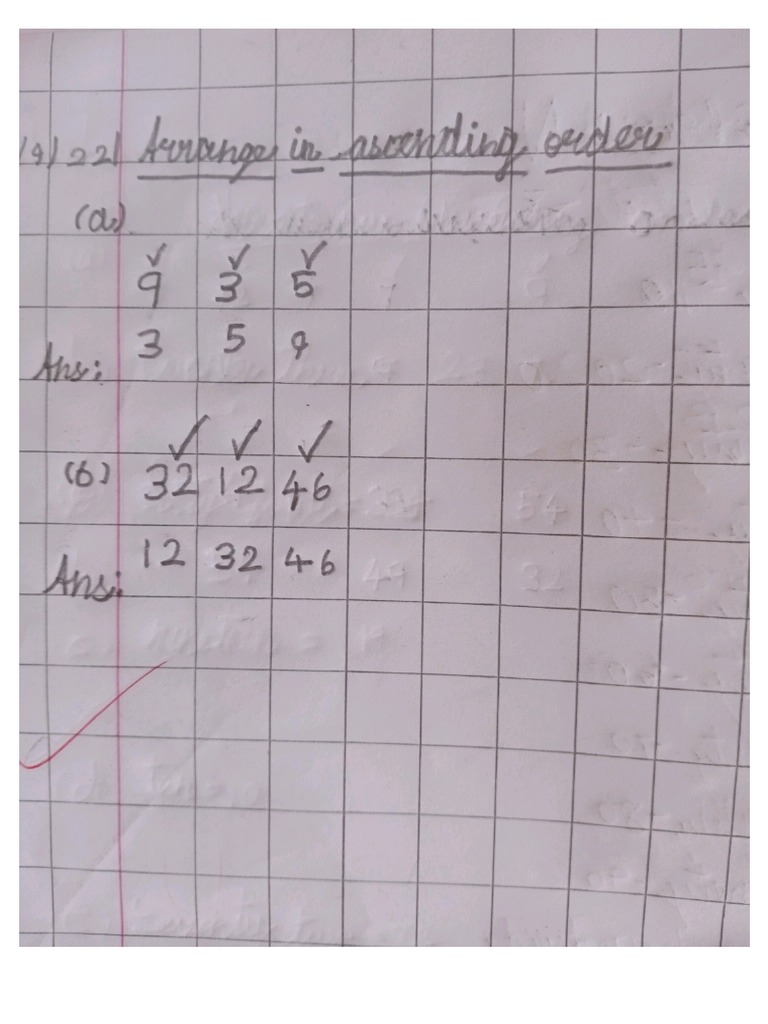 19/22/ Arrange in ascending order
(a)
9 3 5
Ans: 3 5 9
(b) 32 12 46
Ans: 12 32 46